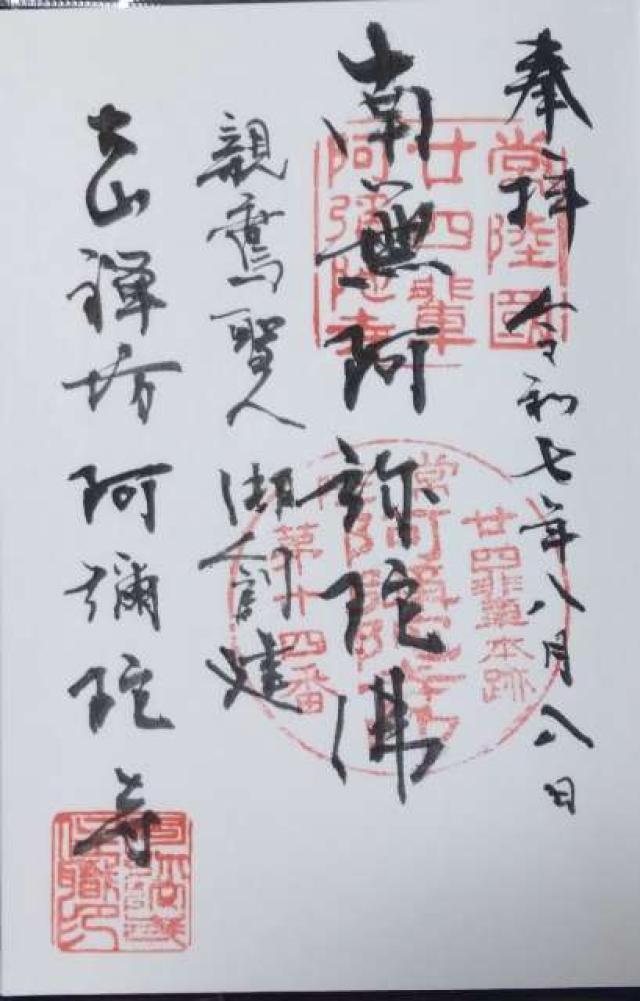 奉拝 令和七年八月八日
南無阿弥陀佛
親鸞聖人御創建
大山禅坊阿彌陀寺
常陸國
廿四輩
阿彌陀寺
廿四輩本跡
第十四番